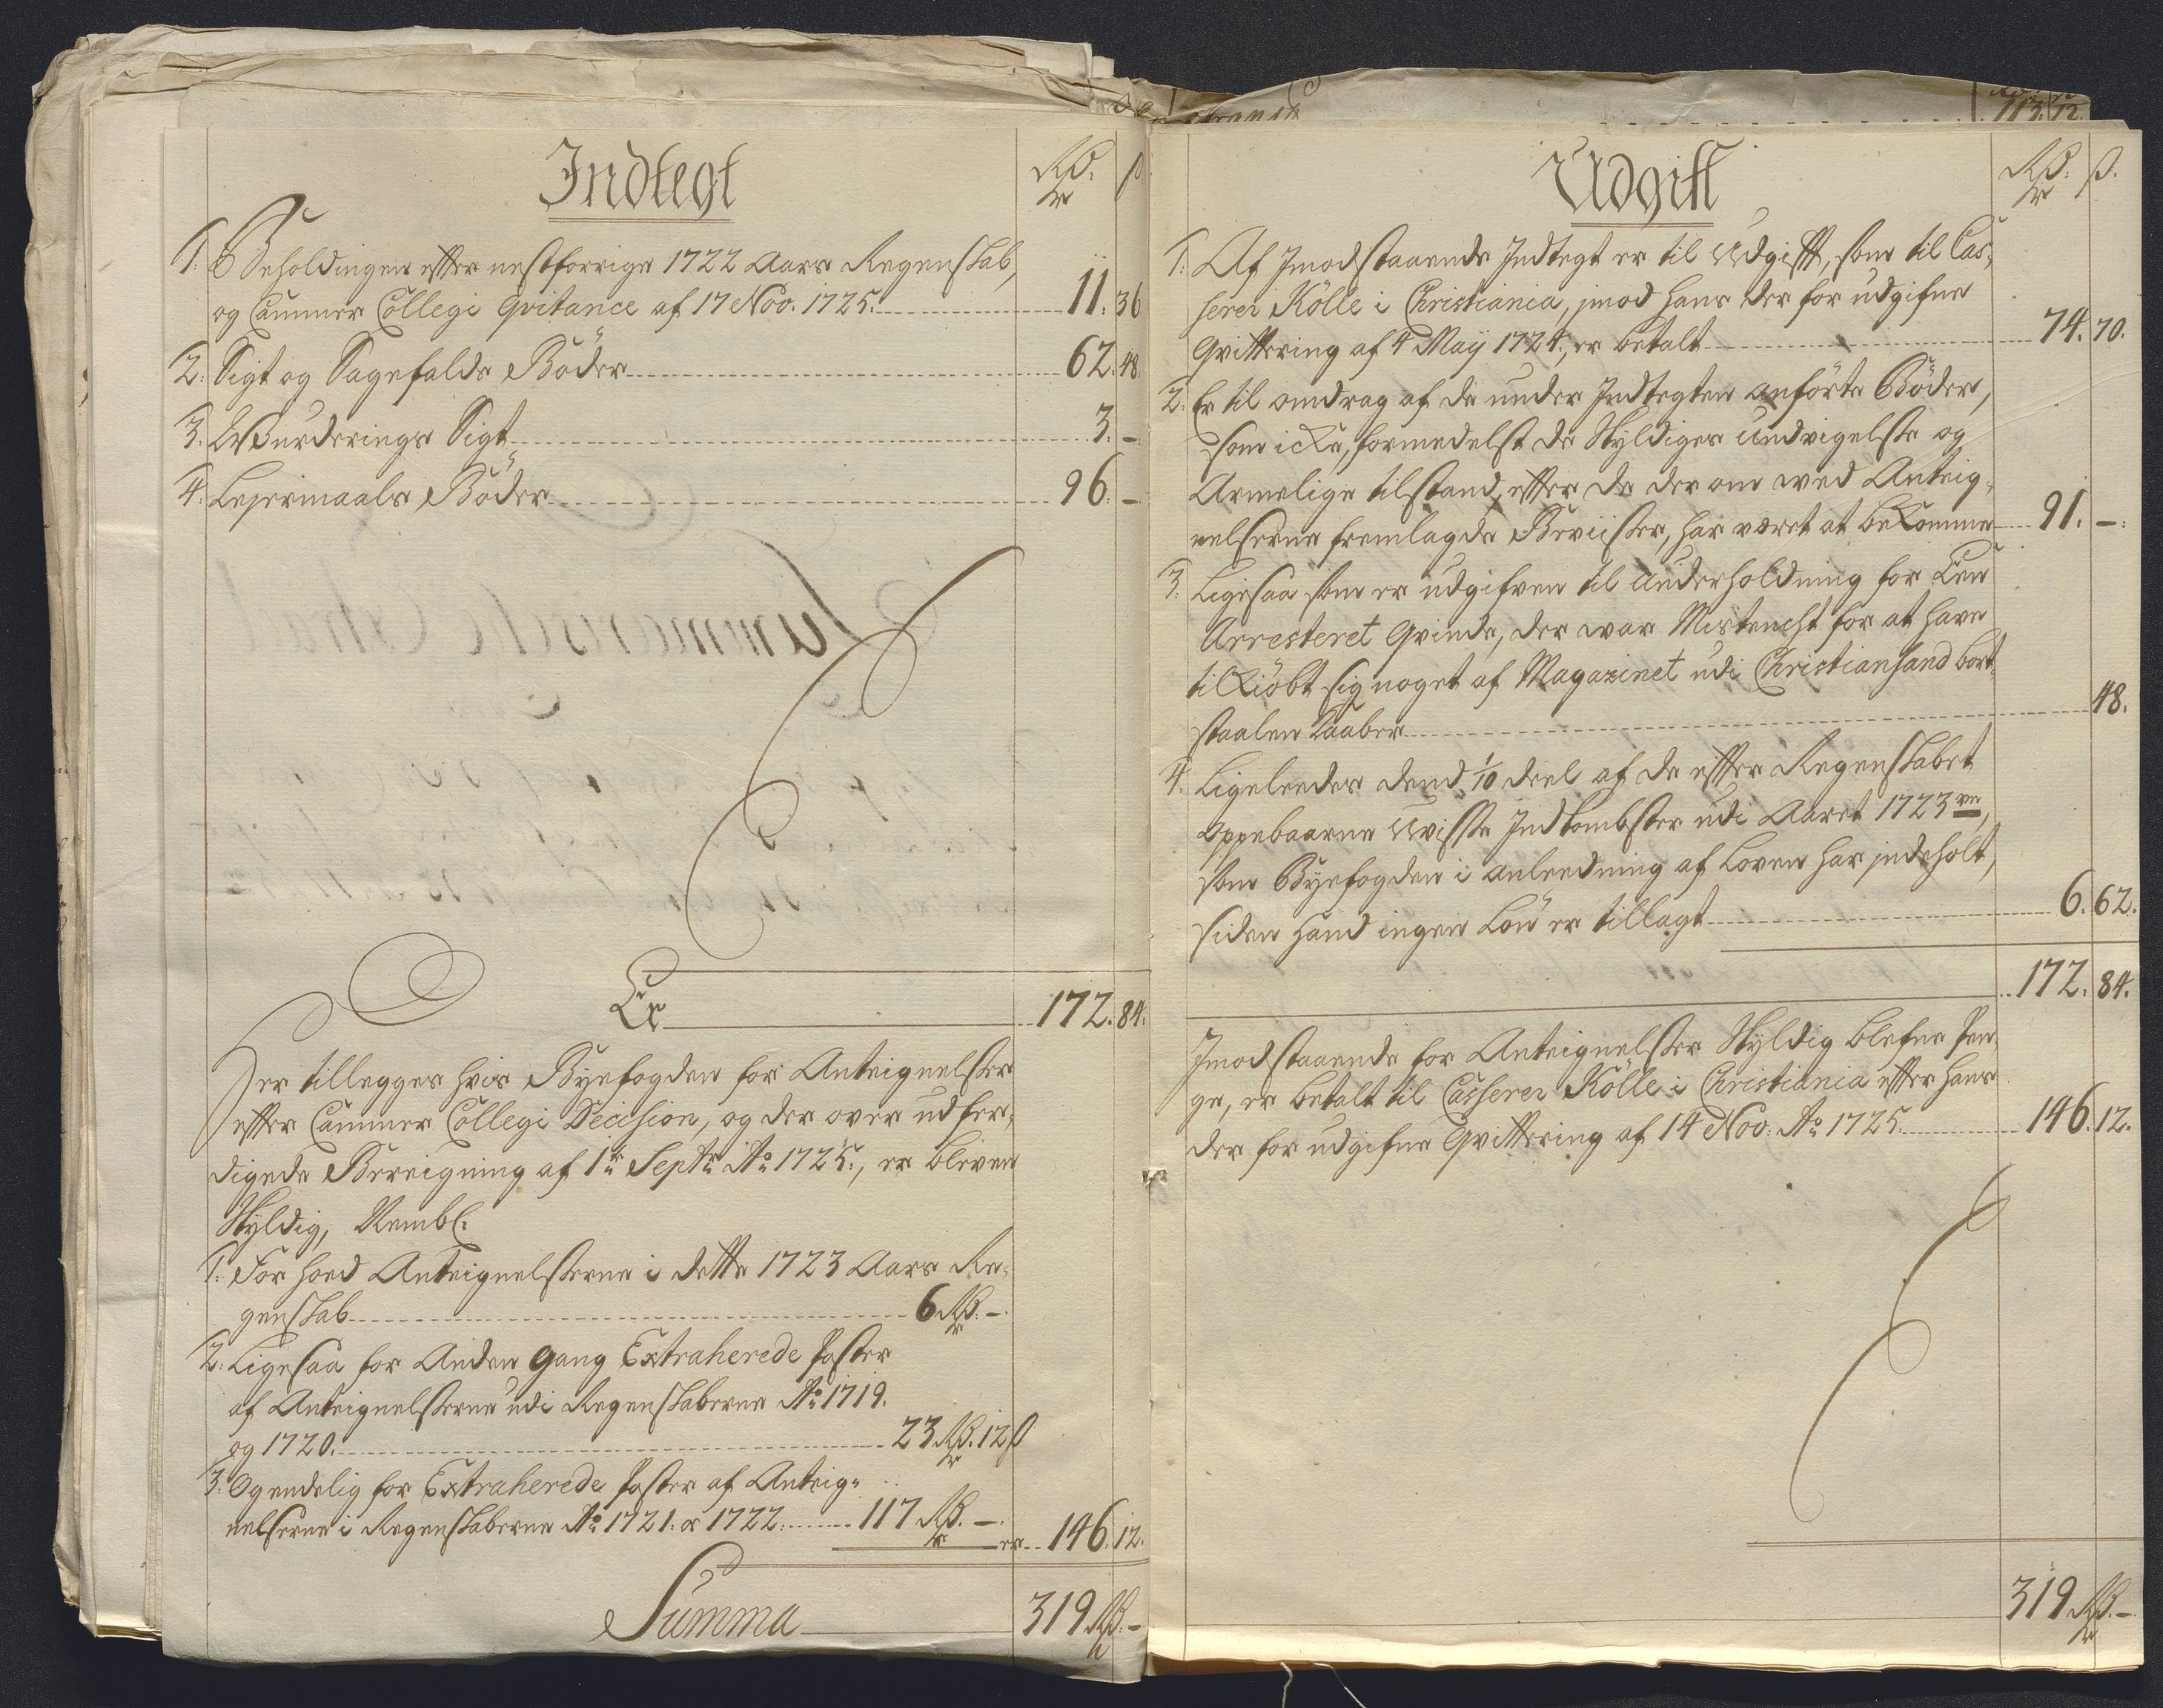 Indtegt
Rd. ß
1. Beholdingen effter nestforrige 1722 Aars Regenskab,
og Cammer Collegi Qvitance af 17 Nov. 1725. 11. 36
2. Sigt og Sagefalds Böder 62. 48.
3. Wurderings Sigt 3. –
4. Lejermaals Böder 96. –
Er 172. 84.
Her tillegges hvis Byefogden for Anteignelsser
effter Cammer Collegi Decision, og der over udfer-
digede Bereigning af 1te Septr. Ao 1725., er bleven
Skyldig, Nembl:
1. For hoed Anteignelsserne i dette 1723 Aars Re-
genskab 6 Rd. –
2. Ligesaa for Anden gang Extraherede Poster
af Anteignelsserne udi Regenskaberne Ao 1719.
og 1720. 23 Rd. 12 ß
3. Og endelig for Extraherede Poster af Anteig-
nelserne i Regenskaberne Ao 1721. & 1722. 117 Rd. –
er 146. 12.
Summa 319 Rd. –
113. 72.
Udgift
Rd. ß.
1. Af Imodstaaende Indtegt er til Udgifft, som til Cas-
serer Kölle i Christiania, imod hans der for udgifne
Qvittering af 4 Maij 1724., er betalt 74. 70.
2. Er til omdrag af de under Indtegten anförte Böder,
som icke, formedelst de Skyldiges undvigelsse og
Armelige tilstand, effter de der om wed Anteig-
nelserne fremlagde Beviisser, har været at bekomme 91. –
3. Ligesaa som er udgifven til Underholdning for Een
Arresteret Qvinde, der war Mistencht for at have
tilkiöbt sig noget af Magazinet udi Christiansand bort-
staalen Kaaber 48.
4. Ligeleedes dend 1/10 deel af de effter Regenskabet
Oppebaarne Uvisse Indkombster udi Aaret 1723ve,
som Byefogden i anleedning af Loven har indeholt,
siden hand ingen Lön er tillagt 6. 62.
172. 84.
Imodstaaende for Anteignelsser Skyldig blefne Pen-
ge, er betalt til Casserer Kölle i Christiania effter hans
der for udgifne Qvittering af 14 Nov. Ao 1725. 146. 12.
319 Rd. –